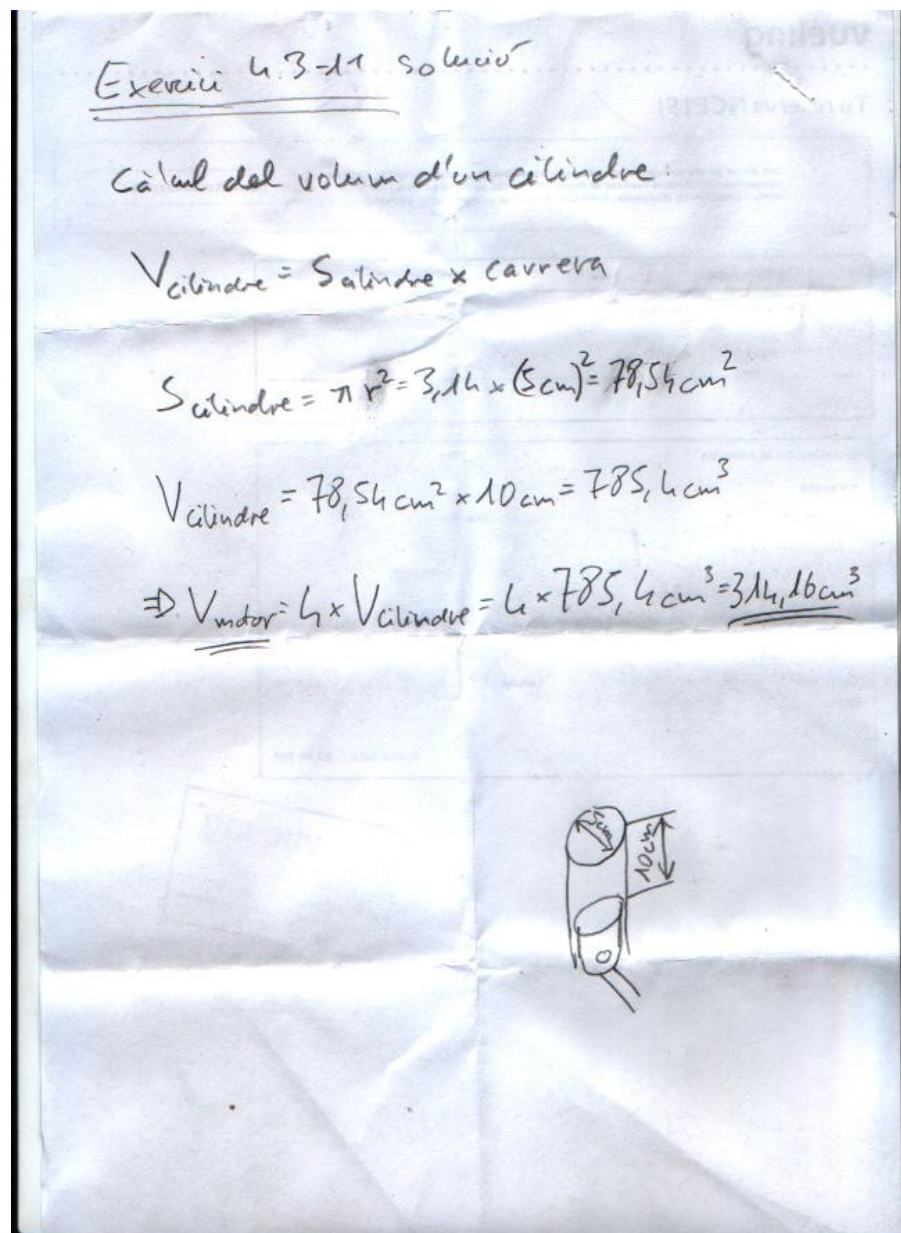 Exercici 4.3-11 solució
Càlcul del volum d'un cilindre:
V cilindre = S cilindre x carrera
S cilindre = π r² = 3,14 x (5cm)² = 78,54 cm²
V cilindre = 78,54 cm² x 10 cm = 785,4 cm³
⇒ V motor = 4 x V cilindre = 4 x 785,4 cm³ = 314,16 cm³
5cm
10cm
vueling